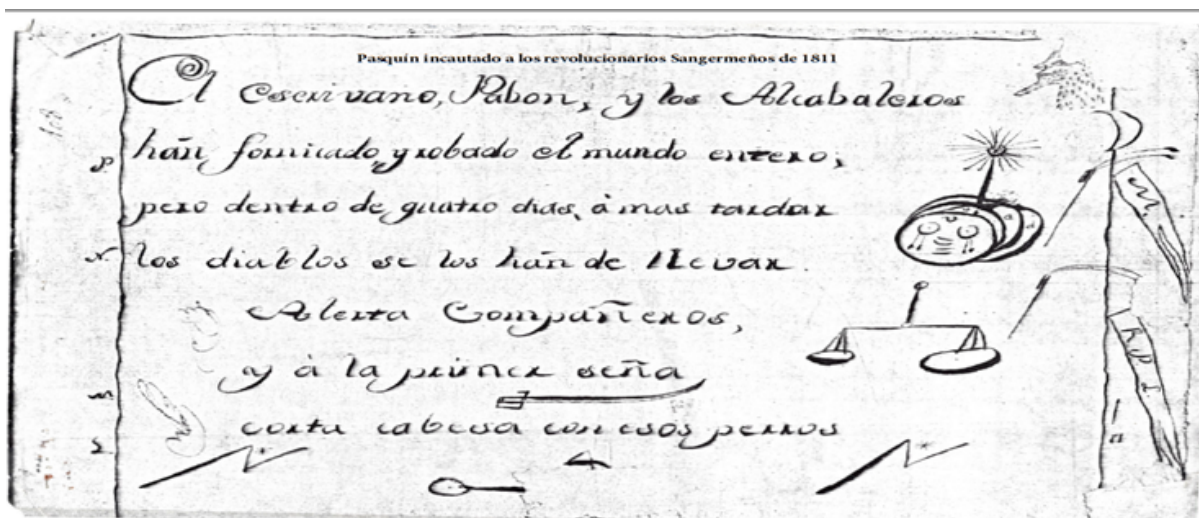 Pasquín incautado a los revolucionarios Sangermeños de 1811
El Escrivano, Pabon, y los Alcabaleros
hán fornicado, y robado el mundo entero;
pero dentro de quatro dias, á mas tardar
los diablos se los hán de llevar.
Alerta Compañeros,
y á la primer seña
corta cabesa con esos perros
R D I